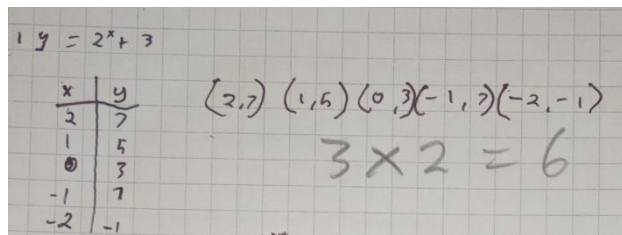 1 y = 2ˣ + 3
x | y
2 | 7
1 | 5
0 | 3
-1 | 7
-2 | -1
(2,7) (1,5) (0,3) (-1,7) (-2,-1)
3 × 2 = 6